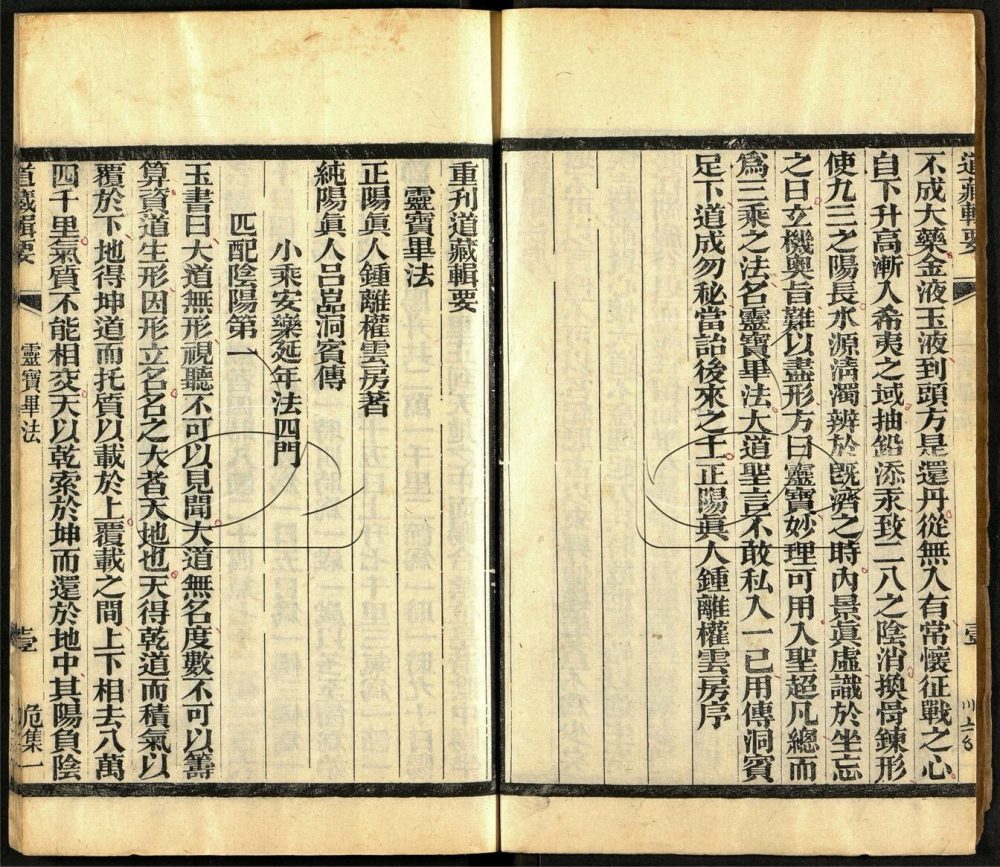 道藏輯要
壹
不成大藥金液玉液到頭方是還丹從無入有常懷征戰之心
自下升高漸入希夷之域抽鉛添汞致二八之陰消換骨鍊形
使九三之陽長水源淸濁辨於旣濟之時內景眞虛識於坐忘
之日玄機奧旨難以盡形方曰靈寶妙理可用入聖超凡總而
爲三乘之法名靈寶畢法大道聖言不敢私入一已用傳洞賓
足下道成勿秘當詒後來之士正陽眞人鍾離權雲房序
重刊道藏輯要
靈寶畢法
正陽眞人鍾離權雲房著
純陽眞人呂嵒洞賓傳
小乘安樂延年法四門
匹配陰陽第一
玉書曰大道無形視聽不可以見聞大道無名度數不可以籌
算資道生形因形立名名之大者天地也天得乾道而積氣以
覆於下地得坤道而托質以載於上覆載之間上下相去八萬
四千里氣質不能相交天以乾索於坤而還於地中其陽負陰
道藏輯要
靈寶畢法
壹
危集一